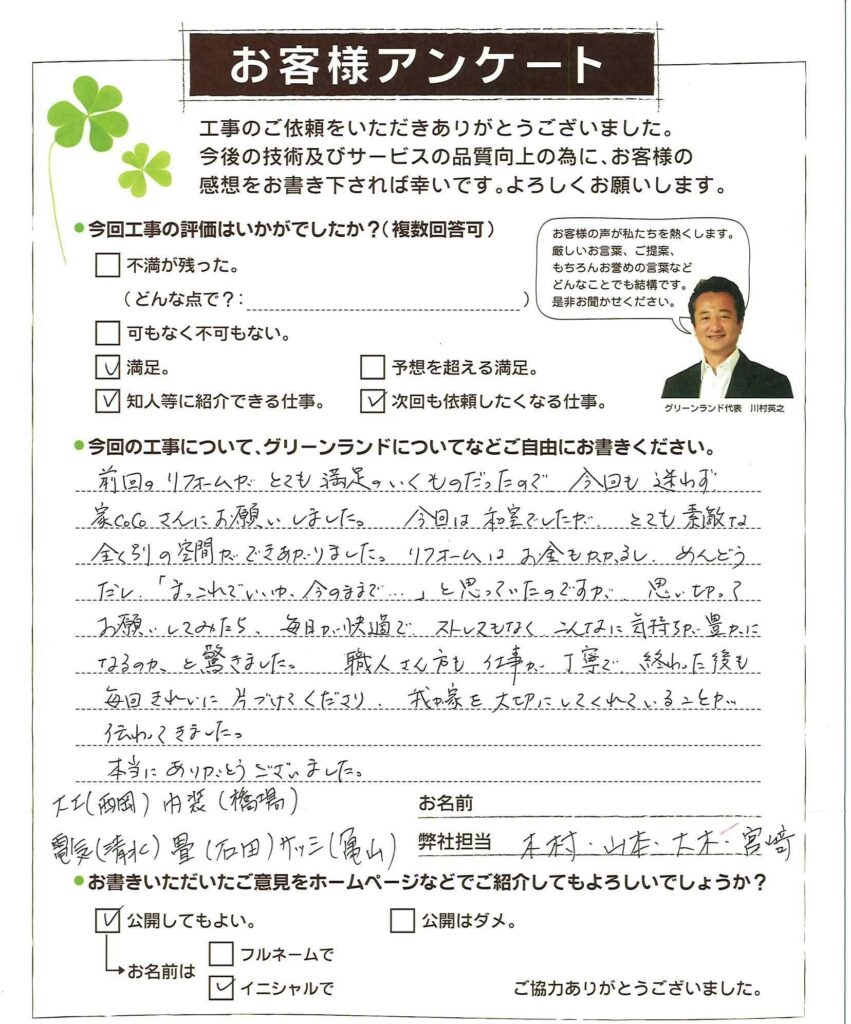 お客様アンケート
工事のご依頼をいただきありがとうございました。
今後の技術及びサービスの品質向上の為に、お客様の
感想をお書き下されば幸いです。よろしくお願いします。
今回工事の評価はいかがでしたか？（複数回答可）
不満が残った。
（どんな点で？：　　　）
可もなく不可もない。
満足。
予想を超える満足。
知人等に紹介できる仕事。
次回も依頼したくなる仕事。
お客様の声が私たちを熱くします。
厳しいお言葉、ご提案、
もちろんお誉めの言葉など
どんなことでも結構です。
是非お聞かせください。
グリーンランド代表　川村英之
今回の工事について、グリーンランドについてなどご自由にお書きください。
前回のリフォームがとても満足のいくものだったので　今回も迷わず
家CoCoさんにお願いしました。　今回は和室でしたが、とても素敵な
全く別の空間ができあがりました。リフォームはお金もかかるし、めんどう
だし、「まっこれでいいや、今のままで…」と思っていたのですが、思い切って
お願いしてみたら、毎日が快適で、ストレスもなく、こんなに気持ちが豊かに
なるのか、と驚きました。　職人さん方も仕事が丁寧で、終わった後も
毎回きれいに片づけてくださり、我が家を大切にしてくれていることが
伝わってきました。
本当にありがとうございました。
大工(西岡)　内装(橋場)
電気(清水)　畳(石田)　サッシ(亀山)
お名前
弊社担当　木村・山本・大木・宮﨑
お書きいただいたご意見をホームページなどでご紹介してもよろしいでしょうか？
公開してもよい。
公開はダメ。
お名前は
フルネームで
イニシャルで
ご協力ありがとうございました。